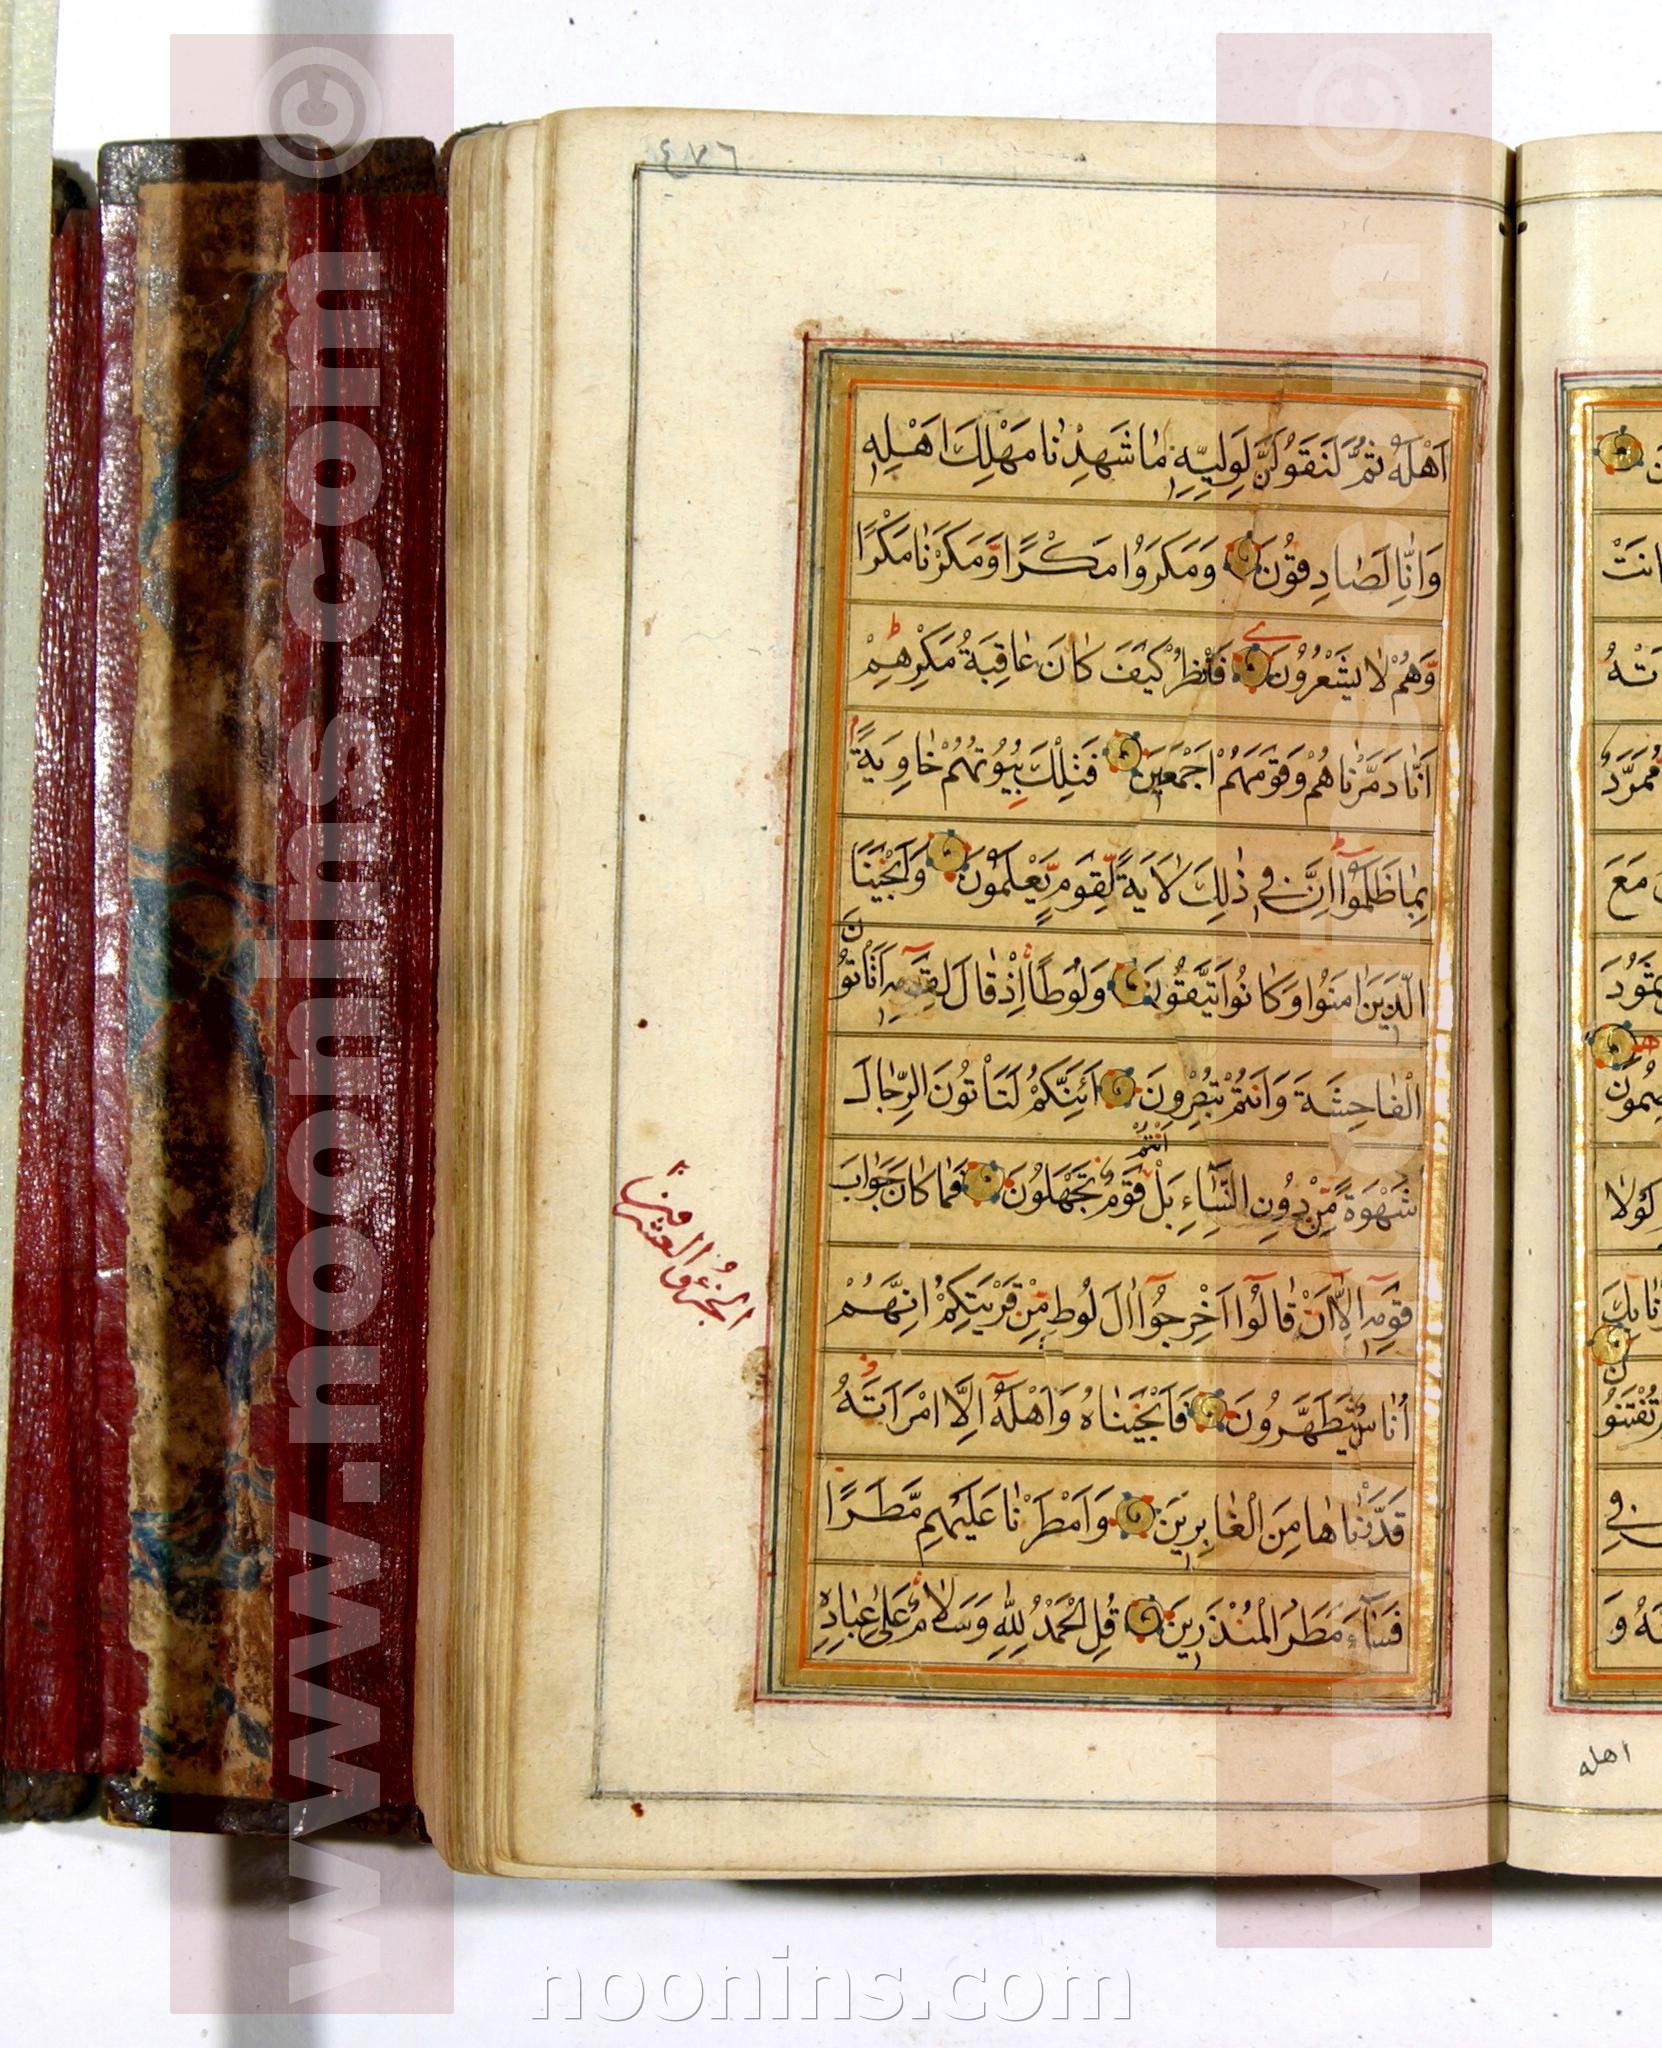 ٤٧٦
اَهْلَهُ ثُمَّ لَنَقُولَنَّ لِوَلِيِّهِ مَا شَهِدْنَا مَهْلِكَ اَهْلِهِ
وَاِنَّا لَصَادِقُونَ وَمَكَرُوا مَكْرًا وَمَكَرْنَا مَكْرًا
وَهُمْ لَا يَشْعُرُونَ فَانْظُرْ كَيْفَ كَانَ عَاقِبَةُ مَكْرِهِمْ
اَنَّا دَمَّرْنَاهُمْ وَقَوْمَهُمْ اَجْمَعِينَ فَتِلْكَ بُيُوتُهُمْ خَاوِيَةً
بِمَا ظَلَمُوا اِنَّ فِي ذٰلِكَ لَاٰيَةً لِقَوْمٍ يَعْلَمُونَ وَاَنْجَيْنَا
الَّذِينَ اٰمَنُوا وَكَانُوا يَتَّقُونَ وَلُوطًا اِذْ قَالَ لِقَوْمِهِ اَتَأْتُونَ
الْفَاحِشَةَ وَاَنْتُمْ تُبْصِرُونَ اَئِنَّكُمْ لَتَأْتُونَ الرِّجَالَ
شَهْوَةً مِنْ دُونِ النِّسَاءِ بَلْ اَنْتُمْ قَوْمٌ تَجْهَلُونَ فَمَا كَانَ جَوَابَ
قَوْمِهِ اِلَّا اَنْ قَالُوا اَخْرِجُوا اٰلَ لُوطٍ مِنْ قَرْيَتِكُمْ اِنَّهُمْ
اُنَاسٌ يَتَطَهَّرُونَ فَاَنْجَيْنَاهُ وَاَهْلَهُ اِلَّا امْرَاَتَهُ
قَدَّرْنَاهَا مِنَ الْغَابِرِينَ وَاَمْطَرْنَا عَلَيْهِمْ مَطَرًا
فَسَاءَ مَطَرُ الْمُنْذَرِينَ قُلِ الْحَمْدُ لِلّٰهِ وَسَلَامٌ عَلٰى عِبَادِهِ
الجُزءُ العشرين
اهله
www.noonins.com ©
www.noonins.com ©
noonins.com